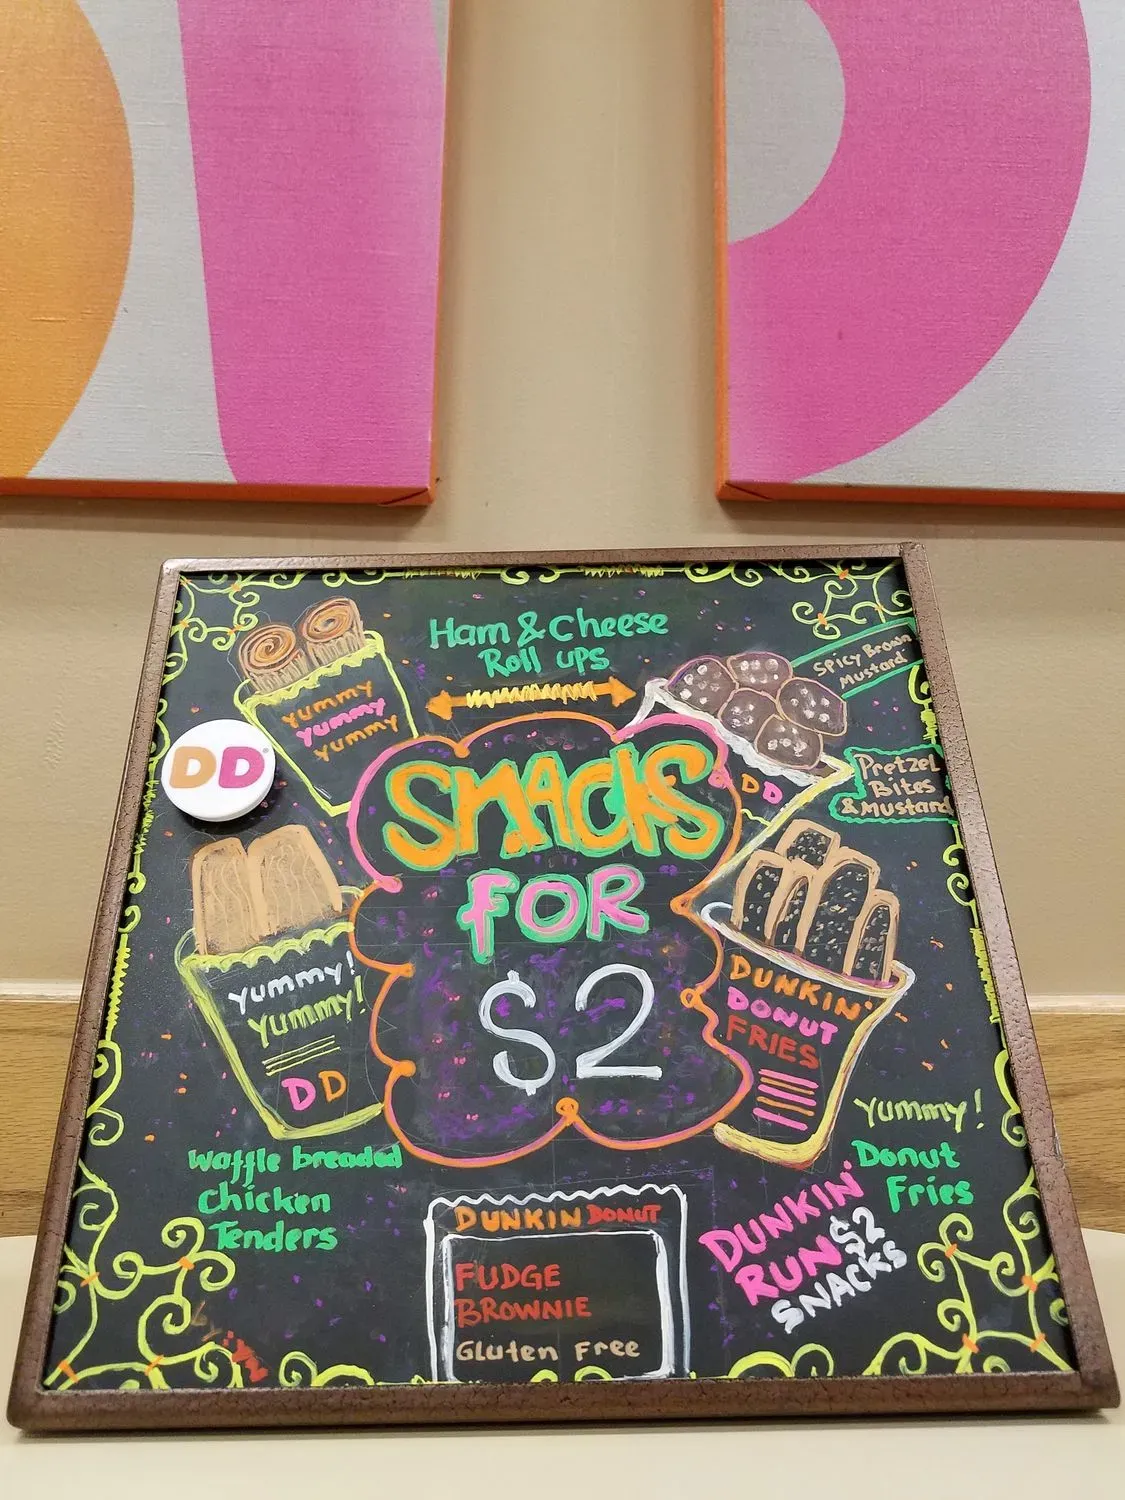 Ham & Cheese
Roll ups
yummy
yummy
yummy
DD
SPICY Brown
Mustard
Pretzel
Bites
& Mustard
DD
SNACKS
FOR
$2
yummy!
yummy!
DD
Waffle breaded
Chicken
Tenders
DUNKIN'
DONUT
FRIES
yummy!
Donut
Fries
DUNKIN'
RUN $2
SNACKS
DUNKIN DONUT
FUDGE
BROWNIE
Gluten Free